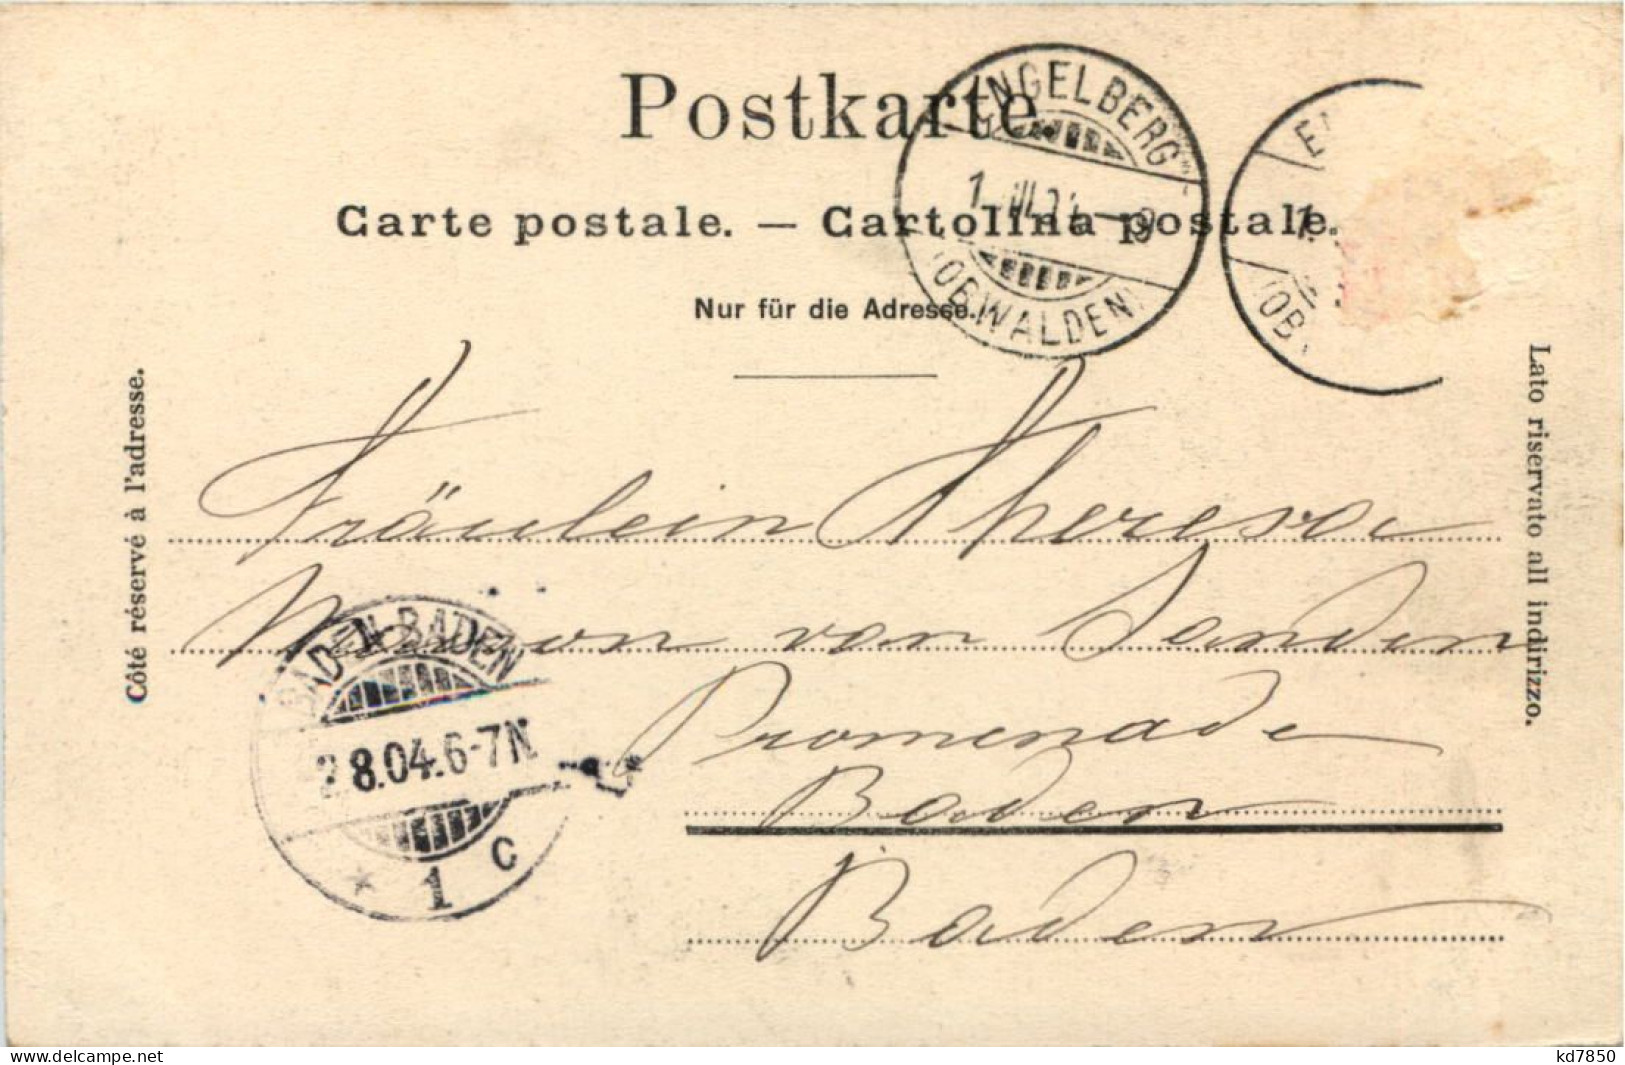 Postkarte
Carte postale. — Cartolina postale.
Nur für die Adresse.
ENGELBERG
(OBWALDEN)
(OBW
Côté réservé à l'adresse.
Lato riservato all indirizzo.
Fräulein Theresa
von Sanden
Promenade
Baden
Baden
BADEN-BADEN
2.8.04.6-7N.
* 1 c
delcampe.net
kd7850